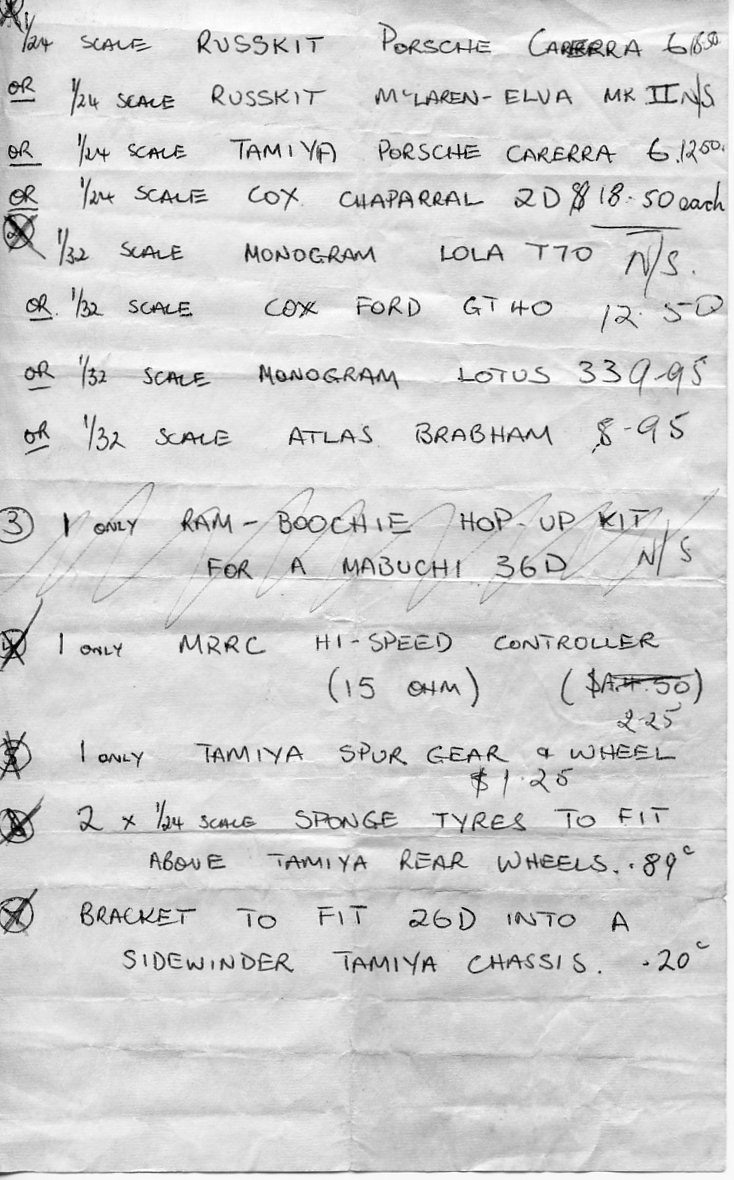 1/24 SCALE RUSSKIT PORSCHE CARERRA 6 18.50
OR 1/24 SCALE RUSSKIT McLAREN-ELVA MK II N/S
OR 1/24 SCALE TAMIYA PORSCHE CARERRA 6. 12.50.
OR 1/24 SCALE COX CHAPARRAL 2D $18.50 each
2 1/32 SCALE MONOGRAM LOLA T70 N/S.
OR. 1/32 SCALE COX FORD GT 40 12.50
OR 1/32 SCALE MONOGRAM LOTUS 33 9-95
OR 1/32 SCALE ATLAS BRABHAM 8-95
3 1 ONLY RAM-BOOCHIE HOP-UP KIT
FOR A MABUCHI 36D N/S
4 1 ONLY MRRC HI-SPEED CONTROLLER
(15 OHM) ($A4.50)
2-25
5 1 ONLY TAMIYA SPUR GEAR & WHEEL
$1.25
6 2 x 1/24 SCALE SPONGE TYRES TO FIT
ABOVE TAMIYA REAR WHEELS. .89c
7 BRACKET TO FIT 26D INTO A
SIDEWINDER TAMIYA CHASSIS. .20c